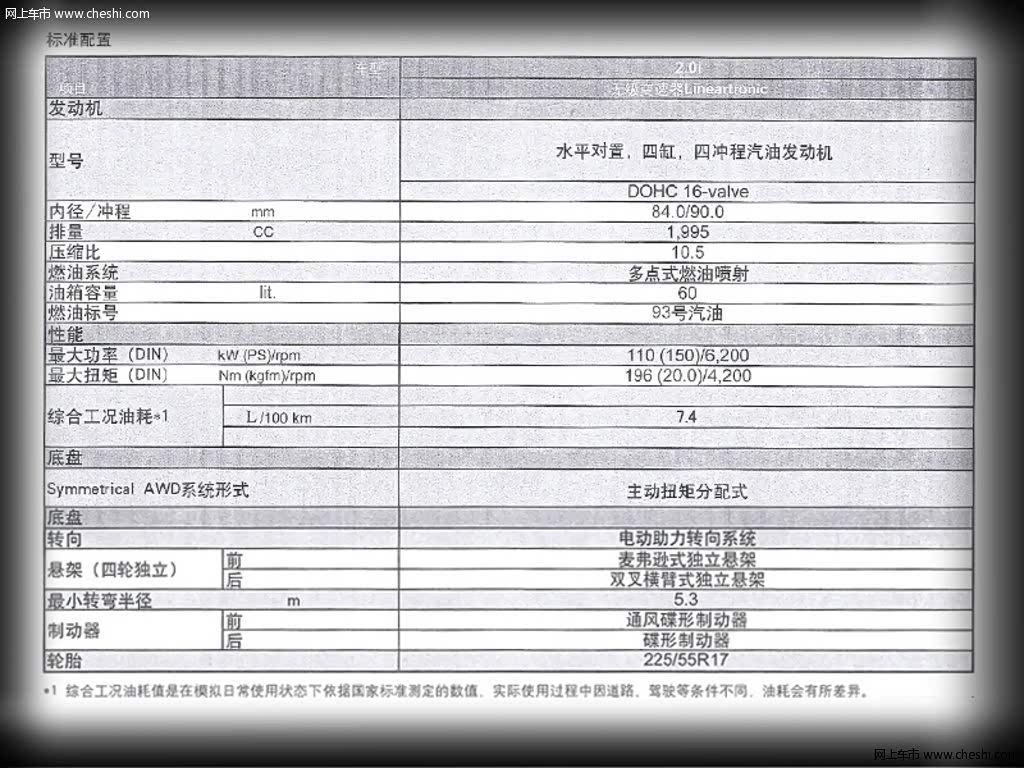 网上车市 www.cheshi.com
标准配置
车型
2.0i
项目
无级变速器Lineartronic
发动机
型号
水平对置，四缸，四冲程汽油发动机
DOHC 16-valve
内径/冲程 mm 84.0/90.0
排量 CC 1,995
压缩比 10.5
燃油系统 多点式燃油喷射
油箱容量 lit. 60
燃油标号 93号汽油
性能
最大功率（DIN） kW (PS)/rpm 110 (150)/6,200
最大扭矩（DIN） Nm (kgfm)/rpm 196 (20.0)/4,200
综合工况油耗*1 L/100 km 7.4
底盘
Symmetrical AWD系统形式 主动扭矩分配式
底盘
转向 电动助力转向系统
悬架（四轮独立） 前 麦弗逊式独立悬架
后 双叉横臂式独立悬架
最小转弯半径 m 5.3
制动器 前 通风碟形制动器
后 碟形制动器
轮胎 225/55R17
*1 综合工况油耗值是在模拟日常使用状态下依据国家标准测定的数值，实际使用过程中因道路，驾驶等条件不同，油耗会有所差异。
网上车市 www.cheshi.com